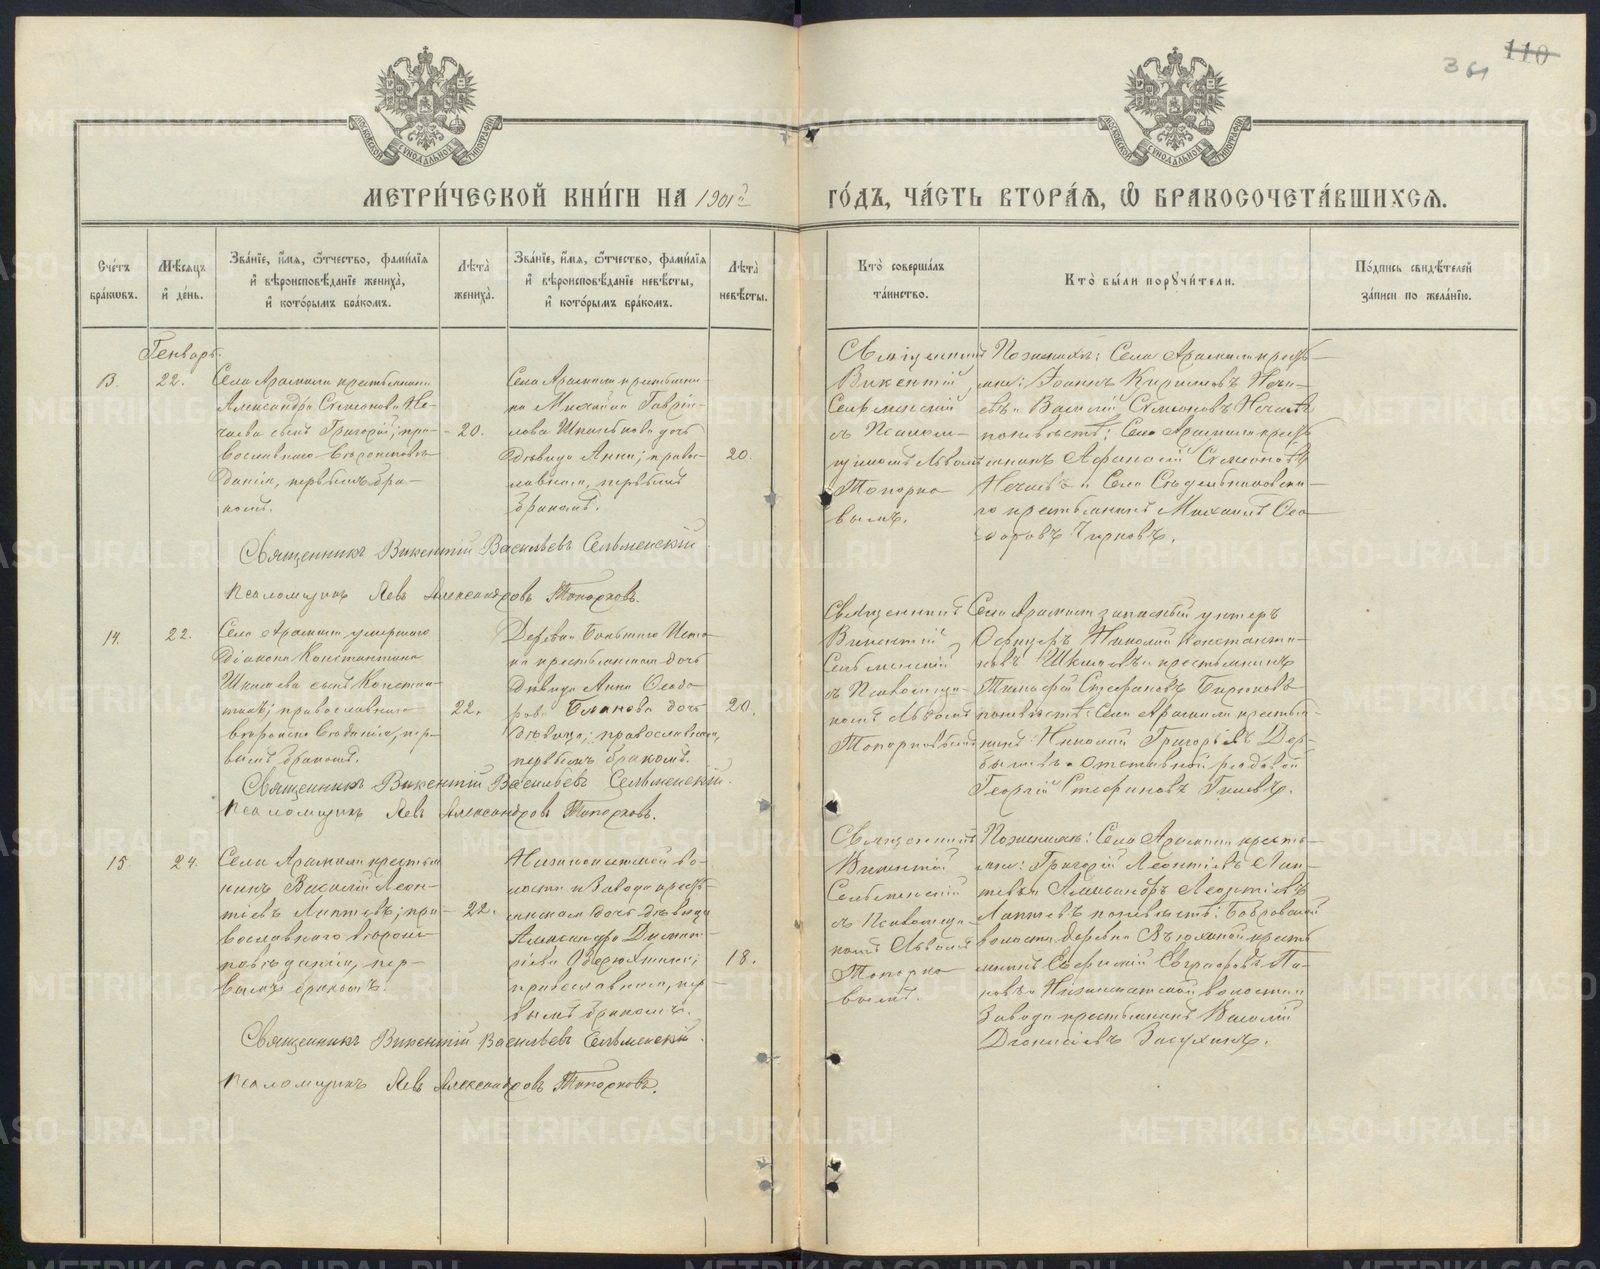 110
361
МЕТРИ́ЧЕСКОЙ КНИ́ГИ НА 1901й ГО́ДЪ, ЧА́СТЬ ВТОРА́Я, Ѽ БРАКОСОЧЕТА́ВШИХСЯ.
Сче́тъ бра́кѡвъ.
Мѣ́сяцъ и҆ де́нь.
Зва́нїе, и҆́мя, ѻ҆́тчество, фами́лїя и҆ вѣроисповѣ́данїе жениха̀, и҆ кото́рымъ бра́комъ.
Лѣ́та жениха̀.
Зва́нїе, и҆́мя, ѻ҆́тчество, фами́лїя и҆ вѣроисповѣ́данїе невѣ́сты, и҆ кото́рымъ бра́комъ.
Лѣ́та невѣ́сты.
Кто̀ соверша́лъ та́инство.
Кто̀ бы́ли порꙋчи́тели.
По́дпись свидѣ́телей за́писи по жела́нїю.
Генварь.
13.
22.
Села Арамили крестьянина
Александра Симеонова Не-
чаева сынъ Григорій; пра-
вославнаго вѣроисповѣ-
данія, первымъ бра-
комъ.
20.
Села Арамили крестьяни-
на Михаила Гаврі-
лова дочь
дѣвица Анна; право-
славнаго, первымъ
бракомъ.
20.
Священникъ
Викентій
Сельменскій
съ Псалом-
щикомъ Львомъ
Топорко-
вымъ.
По женихѣ: Села Арамили кресть-
яне: Іоаннъ Кириловъ Неча-
евъ и Василій Симеоновъ Нечаевъ
по невѣстѣ: Села Арамили кресть-
янинъ Афанасій Симеоновъ
Нечаевъ и Села Сѣдельниковска-
го крестьянинъ Михаилъ Ѳео-
доровъ Чирковъ.
Священникъ Викентій Васильевъ Сельменскій.
Псаломщикъ Левъ Александровъ Топорковъ.
14.
22.
Села Арамили умершаго
Діакона Константина
Шкляева сынъ Констан-
тинъ; православнаго
вѣроисповѣданія, пер-
вымъ бракомъ.
22.
Деревни Большаго Исто-
ка крестьянская дочь
дѣвица Анна Ѳеодо-
рова дочь
дѣвица, православнаго,
первымъ бракомъ.
20.
Священникъ
Викентій
Сельменскій
съ Псаломщи-
комъ Львомъ
Топорковымъ
Села Арамили запасный унтеръ
Офицеръ Николай Константи-
новъ Шкляевъ и крестьянинъ
Тимофей Стефановъ Бирюковъ
по невѣстѣ: Села Арамили крестья-
нинъ Николай Григорьевъ Дер-
бышевъ и отставной рядовой
Георгій Стефановъ
Священникъ Викентій Васильевъ Сельменскій.
Псаломщикъ Левъ Александровъ Топорковъ.
15
24.
Села Арамили крестья-
нинъ Василій Леон-
тіевъ Лаптевъ; пра-
вославнаго вѣроис-
повѣданія, пер-
вымъ бракомъ.
22.
Нижнеисетской во-
лости и Завода кресть-
янская дочь дѣвица
Александра Димит-
ріева
православнаго, пер-
вымъ бракомъ.
18.
Священникъ
Викентій
Сельменскій
съ Псаломщи-
комъ Львомъ
Топорко-
вымъ.
По женихѣ: Села Арамили кресть-
яне: Григорій Леонтіевъ Лап-
тевъ и Александръ Леонтіевъ
Лаптевъ по невѣстѣ: Бобровской
волости деревни кресть-
янинъ Евграфовъ Па-
новъ и Нижнеисетской волости и
Завода крестьянинъ Василій
Діонисіевъ
Священникъ Викентій Васильевъ Сельменскій.
Псаломщикъ Левъ Александровъ Топорковъ.
METRIKI.GASO-URAL.RU